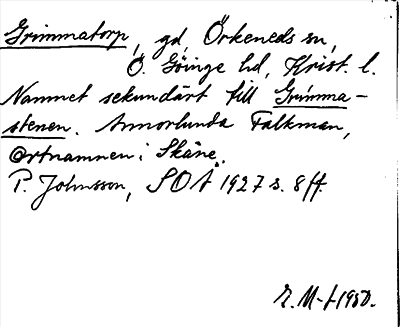 Grimmatorp, gd, Örkeneds sn,
Ö. Göinge hd, Krist. l.
Namnet sekundärt till Grimma-
stenen. Annorlunda Falkman,
Ortnamnen i Skåne.
P. Johnsson, SOÅ 1927 s. 8 ff.
1950.